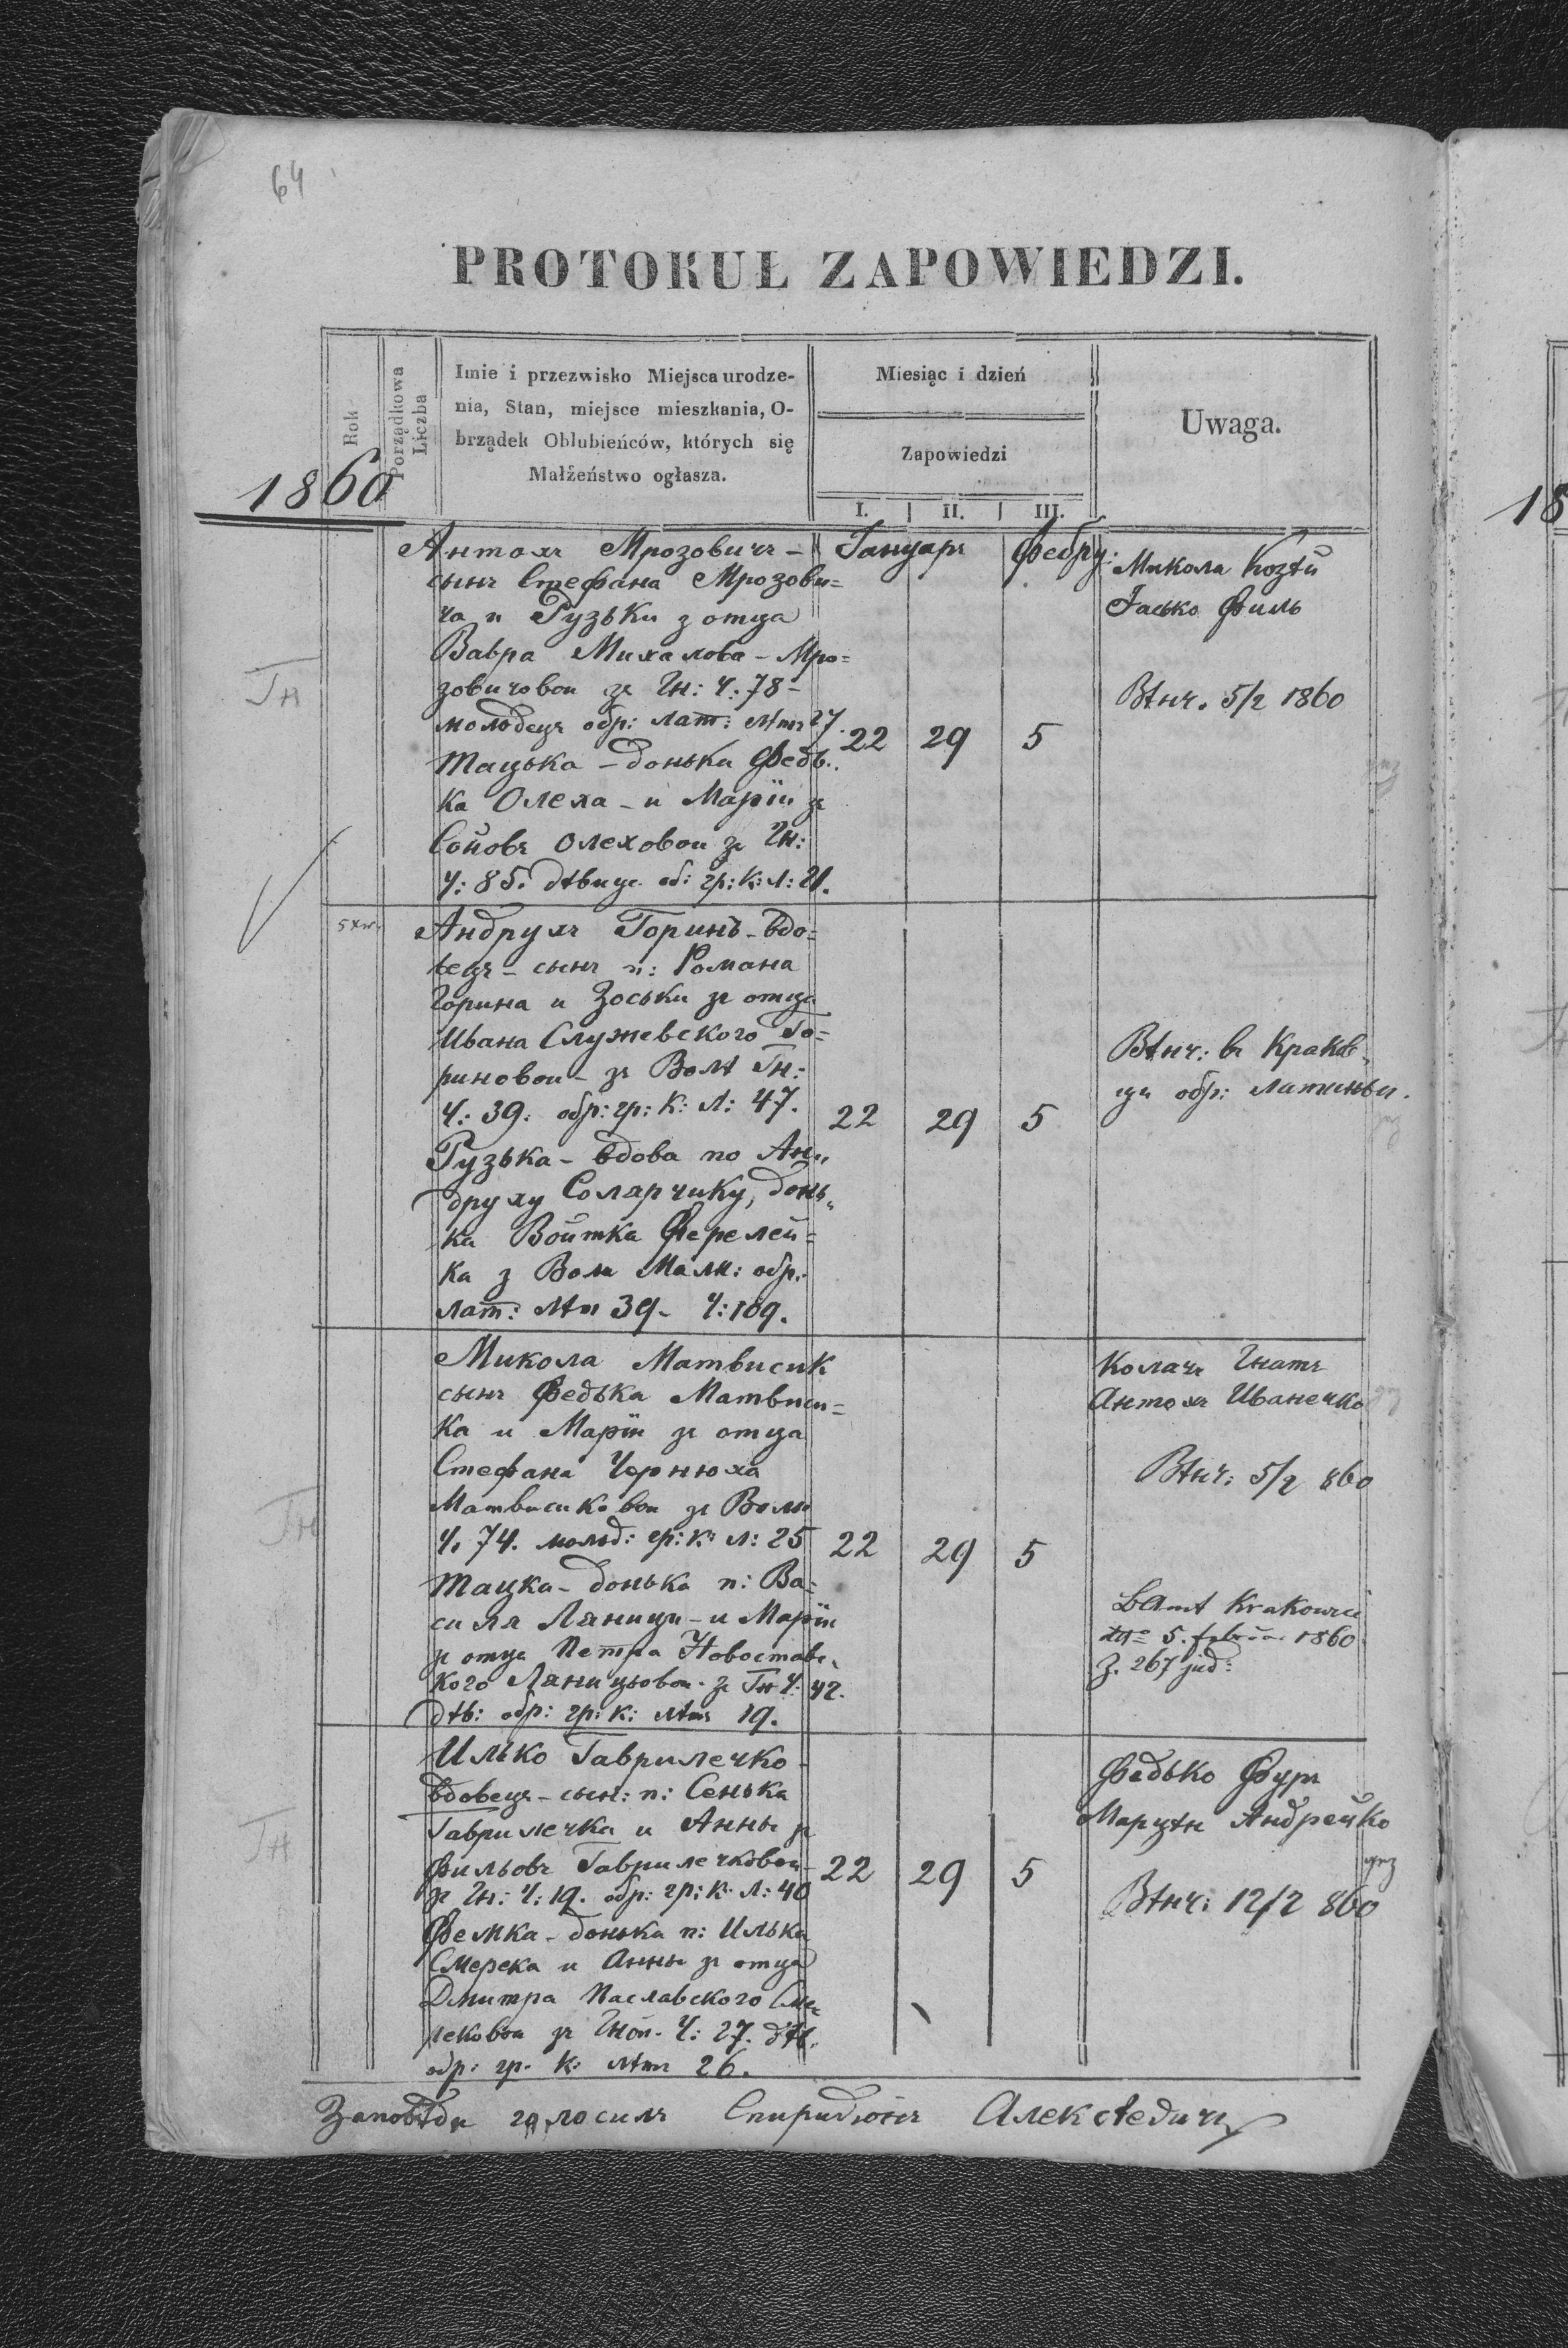 64
PROTOKUŁ ZAPOWIEDZI.
Rok
Porządkowa Liczba
Imie i przezwisko Miejsca urodze-
nia, Stan, miejsce mieszkania, O-
brządek Oblubieńców, których się
Małżeństwo ogłasza.
Miesiąc i dzień
Zapowiedzi
I. II. III.
Uwaga.
1860
18
Гн
Антохъ Мрозовичъ -
сынъ Стефана Мрозови=
ча и Рузьки з отца
Вавра Михалова - Мро=
зовичовои зъ Гн: Ч: 78 -
молодецъ обр: лат: лѣтъ 27.
Тацька - донька Федь..
ка Олеха - и Маріи зъ
Сойовъ Олеховои зъ Гн:
Ч: 85. дѣвица об: гр: к: л: 21.
Януаръ Фебру:
22 29 5
Микола
Яцько Филь
Вѣнч. 5/2 1860
Андрухъ Горинъ - вдо=
вецъ - сынъ п: Романа
Горина и Зоськи зъ отца
Ивана Служевского Го=
риновои - зъ Волѣ Гн:
Ч: 39. обр: гр: к: л: 47.
Рузька - вдова по Ан„
друху Соларчику, донь„
ка Войтка Ферелей=
ка з Воли Малн: обр.
лат: лѣтъ 39 - Ч: 109.
22 29 5
Вѣнч: въ Краков-
ци обр: латиньи.
Гн
Микола Матвисик
сынъ Федька Матвиси=
ка и Маріи зъ отца
Стефана Чорнюха
Матвисиковои зъ Воли
Ч. 74. молод: гр: к: л: 25
Тацка - донька п: Ва=
силя Ляници - и Маріи
зъ отца Петра Новостав
кого Ляницьовои - зъ Гн Ч: 42.
дѣв: обр: гр: к: лѣтъ 19.
22 29 5
Колачъ Гнатъ
Антохъ Иванечко
Вѣнч: 5/2 860
BAmt Krakowiec
5. 1860
Z. 267 jud:
Гн
Илько Гаврилечко -
вдовецъ - сын: п: Сенька
Гаврилечка и Анны зъ
Фильовъ Гаврилечковои -
зъ Гн: Ч: 19. обр: гр: к: л: 40
Фемка - донька п: Илька
Смерека и Анны зъ отца
Дмитра Паславского Сме=
рековои зъ Гной. Ч: 27. дѣв.
обр: гр. к: лѣтъ 26.
22 29 5
Федько Фуръ
Марцѣн Андрейко
Вѣнч: 12/2 860
Заповѣди голосилъ Спиридіонъ Алексѣевичъ